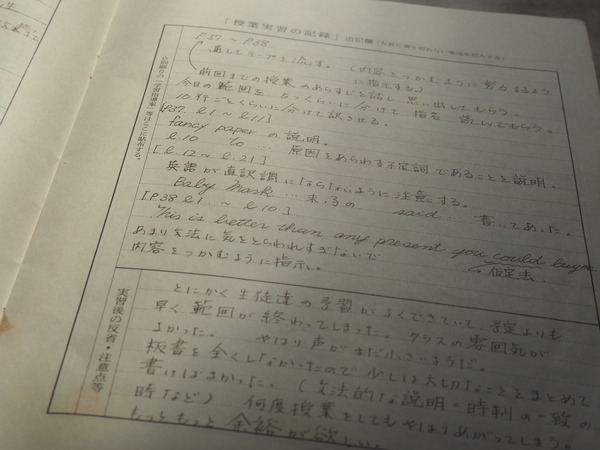 「授業実習の記録」追記欄(左頁に書き切れない事項を記入する)
P37 ~ P38
通してテープを流す。(内容をつかむように努力するように指示する。)
前回までの授業のあらすじを話し思い出してもらう。
今日の範囲を 5つくらいに分けて 指名 読んでもらう。
10行ごとくらいに分けて訳させる。
[P37 l.1 ~ l.11]
fancy paper の説明。
l.10 to ... 原因をあらわす不定詞であることを説明。
[l.12 ~ l.21]
英語が直訳調にならないように注意する。
Baby Mask ... 末弓の said ... 書いてあった。
[P38 l.1 ~ l.10]
This is better than any present you could buy me
→仮定法
あまり文法に気をとらわれすぎないで
内容をつかむように指示。
実習後の反省・注意点等
とにかく生徒達の予習がよくできていて、予定よりも
早く範囲が終わってしまった。クラスの雰囲気が
よかった。 やはり声がまだ小さいようだ。
板書を全くしなかったので少しは大切なことをまとめて
書けばよかった。(文法的な説明・時制の一致の
時など) 何度授業をしてもやはりあがってしまう。
もっともっと余裕が欲しい。